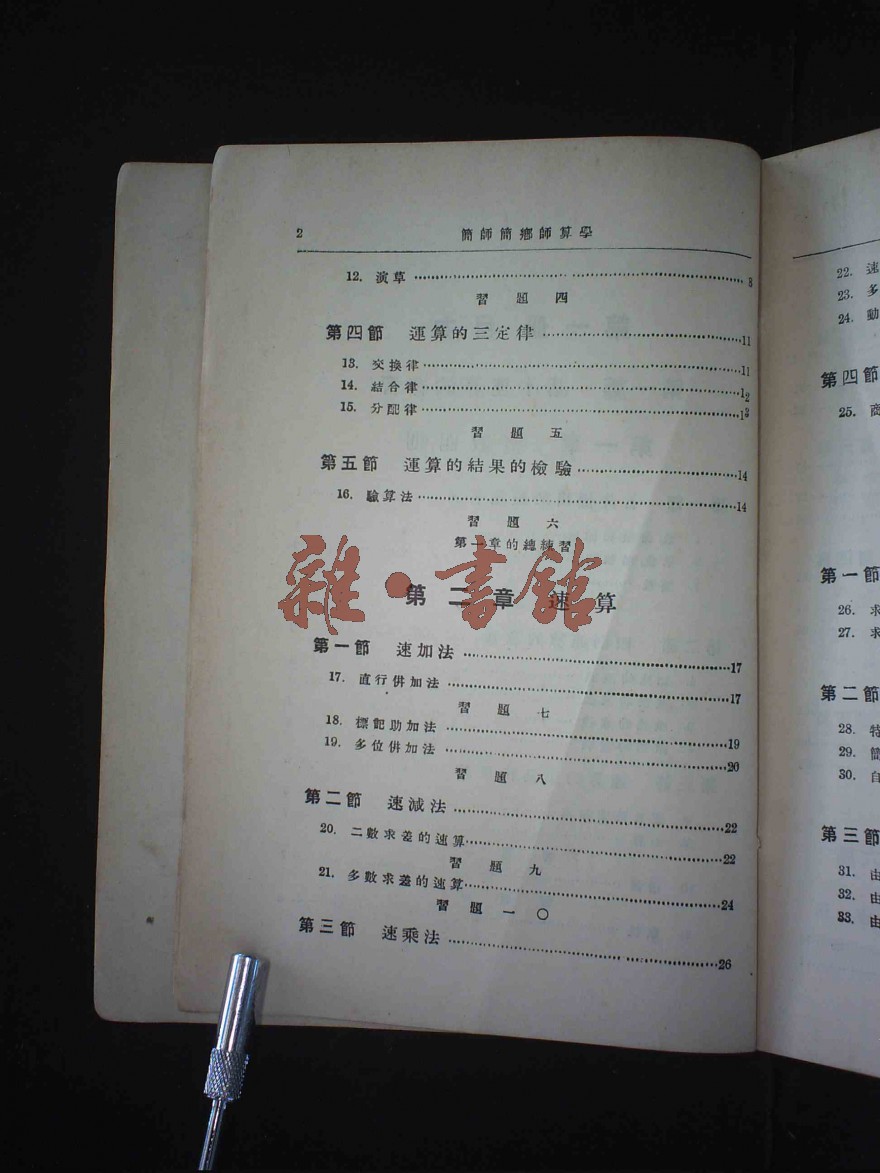 2 簡師簡鄉師算學
12. 演草 8
習題四
第四節 運算的三定律 11
13. 交換律 11
14. 結合律 12
15. 分配律 13
習題五
第五節 運算的結果的檢驗 14
16. 驗算法 14
習題六
第一章的總練習
第二章 速算
雜·書館
第一節 速加法 17
17. 直行倂加法 17
習題七
18. 標記助加法 19
19. 多位倂加法 20
習題八
第二節 速減法 22
20. 二數求差的速算 22
習題九
21. 多數求差的速算 24
習題一〇
第三節 速乘法 26
22. 速
23. 多
24. 動
第四節
25. 商
第一節
26. 求
27. 求
第二節
28. 特
29. 簡
30. 自
第三節
31. 由
32. 由
33. 由